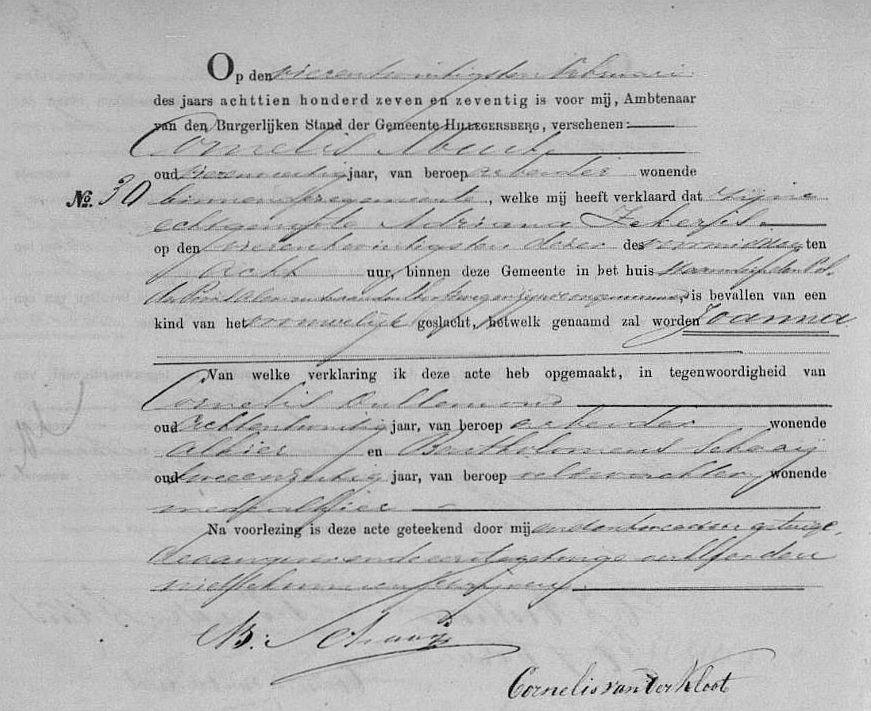 Op den vierentwintigsten Februari
des jaars achttien honderd zeven en zeventig is voor mij, Ambtenaar
van den Burgerlijken Stand der Gemeente HILLEGERSBERG, verschenen:
Cornelis
oud jaar, van beroep arbeider wonende
No. 30 binnen deze gemeente, welke mij heeft verklaard dat zijne
echtgenoote Adriana
op den vierentwintigsten dezer des voormiddags ten
acht uur, binnen deze Gemeente in het huis
is bevallen van een
kind van het vrouwelijk geslacht, hetwelk genaamd zal worden Joanna
Van welke verklaring ik deze acte heb opgemaakt, in tegenwoordigheid van
Cornelis
oud achtentwintig jaar, van beroep arbeider wonende
alhier en Bartholomeus Schaaij
oud jaar, van beroep veldwachter, wonende
mede alhier
Na voorlezing is deze acte geteekend door mij en den tweeden getuige,
de aangever en de eerste getuige verklaarden
niet te kunnen schrijven
B: Schaaij
Cornelis van der Kloot